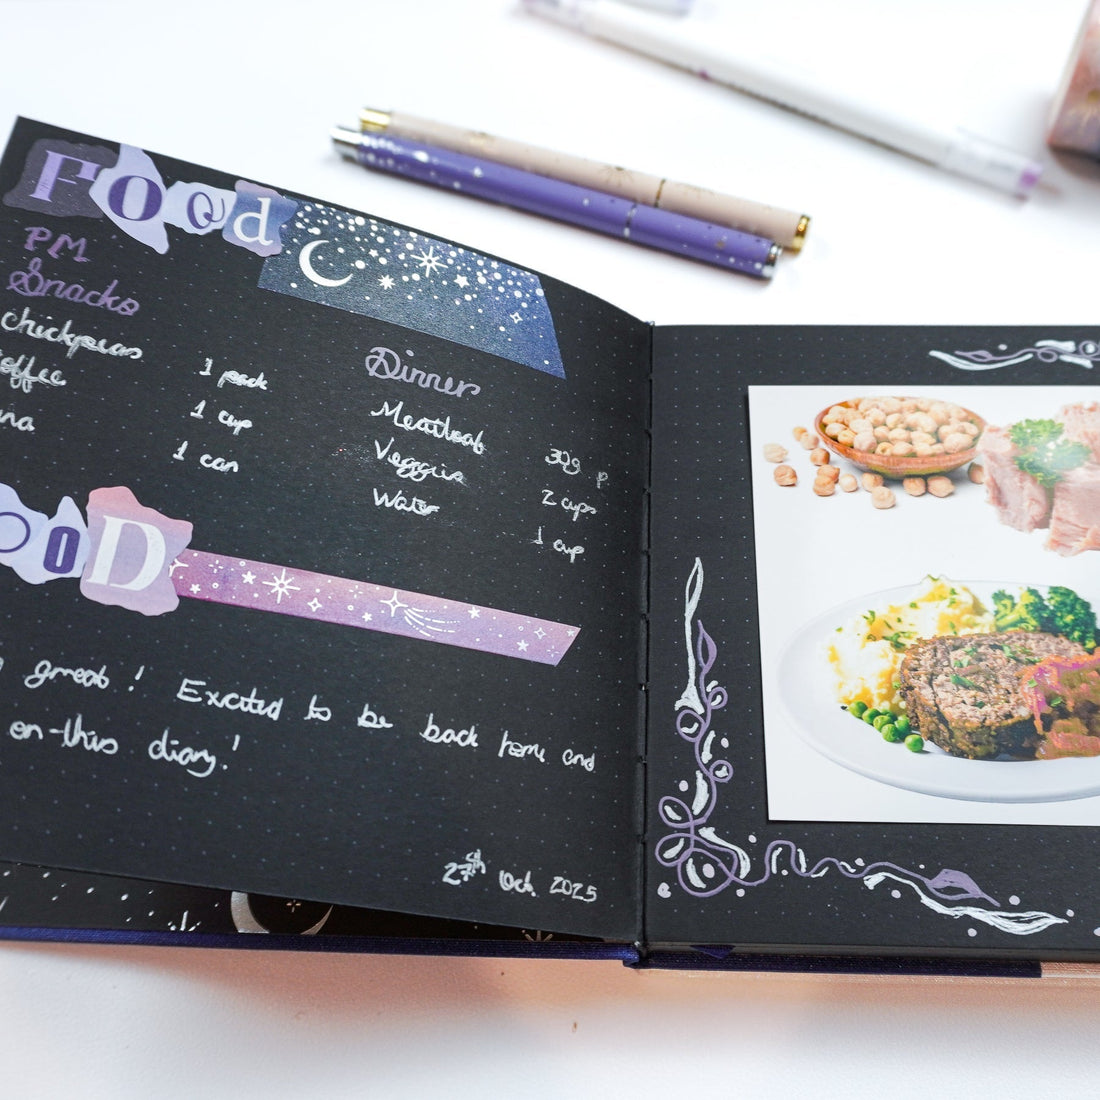 Food
PM
Snacks
chickpeas 1 pack
offee 1 cup
una 1 can
Dinner
Meatloaf 32g. p
Veggies 2 cups
Water 1 cup
OOD
great! Excited to be back home and
on this diary!
27th Oct. 2025